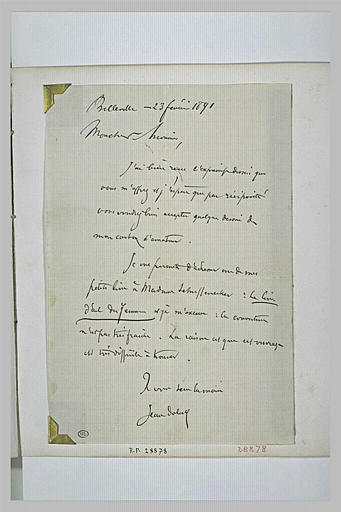 Belleville — 23 février 1891
Monsieur
J'ai bien reçu l' que
vous m'offrez et j'espère que par réciprocité
vous voudrez bien accepter quelque dessin de
mon d'amateur.
Je me permets d'adresser un de mes
petits livres à Madame Schuffenecker : Le livre
d'or des femmes et je m'excuse : la couverture
n'est pas très fraîche. La raison est que cet ouvrage
est très difficile à trouver.
A vous la main
Jean Dolent
R.F. 28878
28878